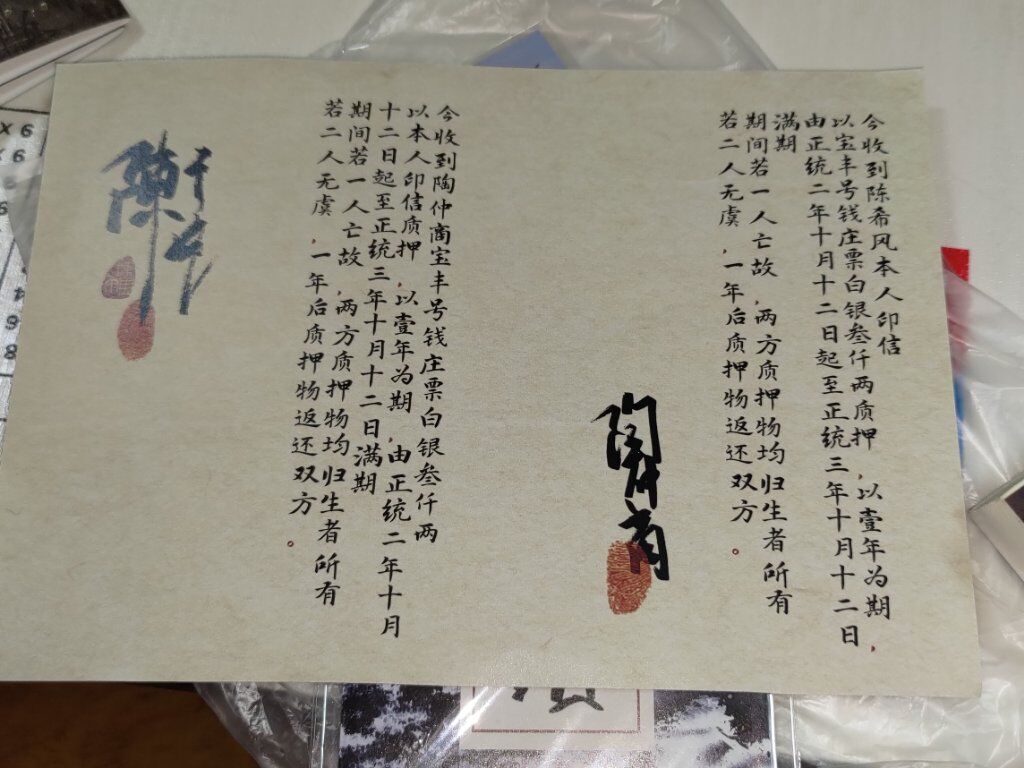 今收到陈希风本人印信
以宝丰号钱庄票白银叁仟两质押，以壹年为期，
由正统二年十月十二日起至正统三年十月十二日
满期
期间若一人亡故，两方质押物均归生者所有
若二人无虞，一年后质押物返还双方。
陶仲商
今收到陶仲商宝丰号钱庄票白银叁仟两
以本人印信质押，以壹年为期，由正统二年十月
十二日起至正统三年十月十二日满期
期间若一人亡故，两方质押物均归生者所有
若二人无虞，一年后质押物返还双方。
x 6
x 6
6
9
8